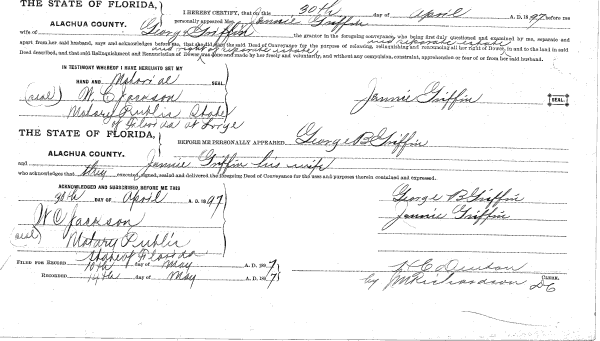 THE STATE OF FLORIDA,
ALACHUA COUNTY.
I HEREBY CERTIFY, that on this 30th day of April A. D. 1897 before me
personally appeared Mrs Jannie Griffin
wife of George Griffin the grantor in the foregoing conveyance, who being first duly questioned and examined by me, separate and
apart from her said husband, says and acknowledges before me, that she did make the said Deed of Conveyance for the purpose of relaxing, relinquishing and renouncing all her right of Dower, in and to the land in said
his separate estate
Deed described, and that said Relinquishment and Renunciation of Dower was done and made by her freely and voluntarily, and without any compulsion, constraint, apprehension or fear of or from her said husband.
IN TESTIMONY WHEREOF I HAVE HEREUNTO SET MY
HAND AND Notarial SEAL
(seal) W. C. Jackson
Jannie Griffin SEAL.
Notary Public State
of Florida at Large
THE STATE OF FLORIDA,
ALACHUA COUNTY.
BEFORE ME PERSONALLY APPEARED George B Griffin
and Jannie Griffin his wife
who acknowledges that they executed, signed, sealed and delivered the foregoing Deed of Conveyance for the uses and purposes therein contained and expressed.
ACKNOWLEDGED AND SUBSCRIBED BEFORE ME THIS
30th DAY OF April A. D. 1897
George B Griffin
Jannie Griffin
W C Jackson
(seal) Notary Public
State of Florida
FILED FOR RECORD 10th day of May A. D. 1897
RECORDED 14th day of May A. D. 1897
H C Denton CLERK.
by J M Richardson DC